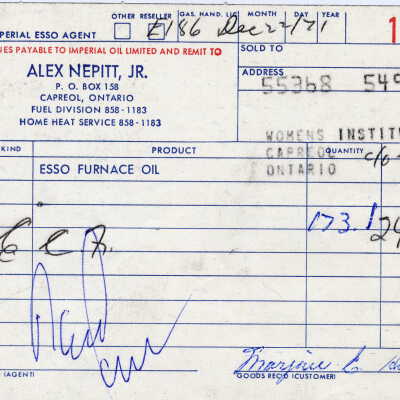 OTHER RESELLER GAS. HAND. LIC. MONTH DAY YEAR
PERIAL ESSO AGENT E186 Dec 22/71 1
UES PAYABLE TO IMPERIAL OIL LIMITED AND REMIT TO
SOLD TO
ALEX NEPITT, JR.
ADDRESS
P. O. BOX 158
55368 549
CAPREOL, ONTARIO
FUEL DIVISION 858-1183
HOME HEAT SERVICE 858-1183
WOMENS INSTIT
KIND PRODUCT QUANTITY
CAPREOL c/o
ESSO FURNACE OIL
ONTARIO
173.1
(AGENT)
GOODS REC'D (CUSTOMER)